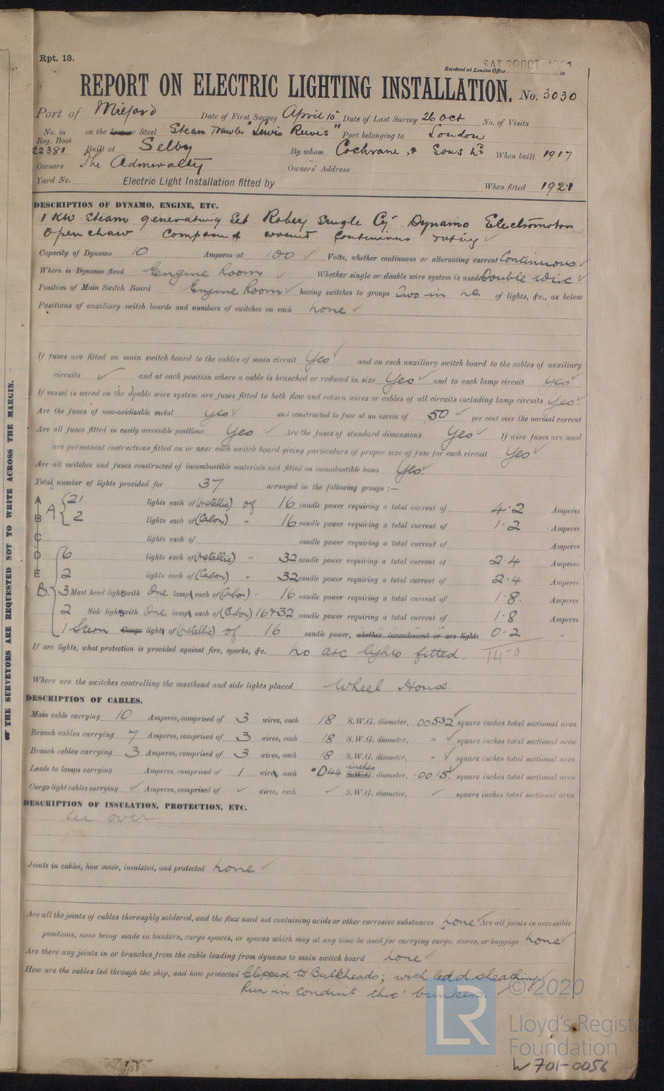 Rpt. 13.
SAT 29 OCT 1921
Received at London Office
REPORT ON ELECTRIC LIGHTING INSTALLATION. No. 3030
Port of Milford Date of First Survey April 10th Date of Last Survey 26 Oct No. of Visits
No. in Reg. Book 22381 on the Iron or Steel Steam Trawler "Lewis Reeves" Port belonging to London
Built at Selby By whom Cochrane & Sons Ld When built 1917
Owners The Admiralty Owners' Address
Yard No. Electric Light Installation fitted by When fitted 1921
DESCRIPTION OF DYNAMO, ENGINE, ETC.
1 KW Steam generating Set Robey Single Cyr Dynamo Electromotors
Open Compound wound Continuous rating
Capacity of Dynamo 10 Amperes at 100 Volts, whether continuous or alternating current Continuous
Where is Dynamo fixed Engine Room Whether single or double wire system is used Double wire
Position of Main Switch Board Engine Room having switches to groups Two in no of lights, &c., as below
Positions of auxiliary switch boards and numbers of switches on each none
If fuses are fitted on main switch board to the cables of main circuit Yes and on each auxiliary switch board to the cables of auxiliary
circuits ✓ and at each position where a cable is branched or reduced in size Yes and to each lamp circuit yes
If vessel is wired on the double wire system are fuses fitted to both flow and return wires or cables of all circuits including lamp circuits Yes
Are the fuses of non-oxidizable metal yes and constructed to fuse at an excess of 50 per cent over the normal current
Are all fuses fitted in easily accessible positions Yes Are the fuses of standard dimensions Yes If wire fuses are used
are permanent instructions fitted on or near each switch board giving particulars of proper size of fuse for each circuit Yes
Are all switches and fuses constructed of incombustible materials and fitted on incombustible bases Yes
Total number of lights provided for 37 arranged in the following groups :—
A A 21 lights each of (Metallic) of 16 candle power requiring a total current of 4.2 Amperes
B 2 lights each of (Carbon) " 16 candle power requiring a total current of 1.2 Amperes
C lights each of candle power requiring a total current of Amperes
D 6 lights each of (Metallic) " 32 candle power requiring a total current of 2.4 Amperes
E 2 lights each of (Carbon) " 32 candle power requiring a total current of 2.4 Amperes
B 3 Mast head lights with One lamp each of (Carbon) - 16 candle power requiring a total current of 1.8 Amperes
2 Side lights with One lamp each of (Carbon) 16+32 candle power requiring a total current of 1.8 Amperes
1 Stern Cargo lights of (Metallic) of 16 candle power, whether incandescent or arc lights 0.2 "
If arc lights, what protection is provided against fire, sparks, &c. no arc lights fitted. 14.0
Where are the switches controlling the masthead and side lights placed Wheel House
DESCRIPTION OF CABLES.
Main cable carrying 10 Amperes, comprised of 3 wires, each 18 S.W.G. diameter, .00532 square inches total sectional area
Branch cables carrying 7 Amperes, comprised of 3 wires, each 18 S.W.G. diameter, " square inches total sectional area
Branch cables carrying 3 Amperes, comprised of 3 wires, each 18 S.W.G. diameter, " square inches total sectional area
Leads to lamps carrying Amperes, comprised of 1 wires, each .044 inches S.W.G. diameter, .0015 square inches total sectional area
Cargo light cables carrying ✓ Amperes, comprised of ✓ wires, each ✓ S.W.G. diameter, ✓ square inches total sectional area
DESCRIPTION OF INSULATION, PROTECTION, ETC.
see over
Joints in cables, how made, insulated, and protected none
Are all the joints of cables thoroughly soldered, and the flux used not containing acids or other corrosive substances none Are all joints in accessible
positions, none being made in bunkers, cargo spaces, or spaces which may at any time be used for carrying cargo, stores, or baggage none
Are there any joints in or branches from the cable leading from dynamo to main switch board none
How are the cables led through the ship, and how protected Clipped to Bulkheads; with lead sheathing
Run in conduit thro' bunkers.
THE SURVEYORS ARE REQUESTED NOT TO WRITE ACROSS THE MARGIN.
LR
© 2020
Lloyd's Register
Foundation
W701-0056